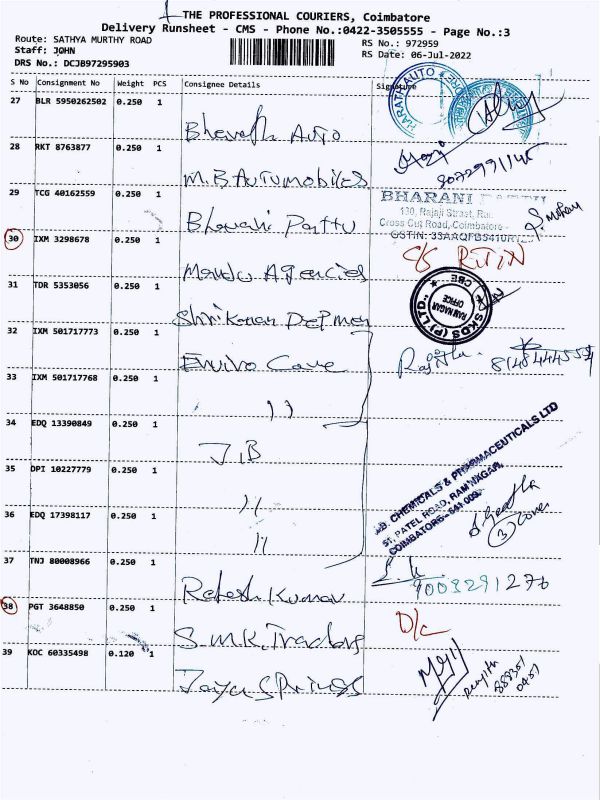 THE PROFESSIONAL COURIERS, Coimbatore
Delivery Runsheet - CMS - Phone No.:0422-3505555 - Page No.:3
Route: SATHYA MURTHY ROAD
RS No.: 972959
Staff: JOHN
RS Date: 06-Jul-2022
DRS No.: DCJB97295903
S No Consignment No Weight PCS Consignee Details Signature
27 BLR 5950262502 0.250 1
Bharath Auto
28 RKT 8763877 0.250 1
M.B Automobiles
9072991145
29 TCG 40162559 0.250 1
BHARANI
130, Rajaji Street,
Cross Cut Road, Coimbatore -
Bharani Pattu
30 IXM 3298678 0.250 1
GSTIN: 33AAQFB5410R1Z
Manju Agencies
C/S RETIN
31 TDR 5353056 0.250 1
SKDS (P) LTD
RAM NAGAR
OFFICE
CBE
32 IXM 501717773 0.250 1
Enviro Care
8148444554
33 IXM 501717768 0.250 1
11
34 EDQ 13390849 0.250 1
J.B
35 OPI 10227779 0.250 1
11
J.B. CHEMICALS & PHARMACEUTICALS LTD
ST. PATEL ROAD, RAM NAGAR,
COIMBATORE - 641 009.
36 EDQ 17398117 0.250 1
11
3
37 TNJ 80008966 0.250 1
Rakesh Kumar
9003291276
38 PGT 3648850 0.250 1
S.M.K. Traders
D/C
39 KOC 60335498 0.120 1
Jaya Springs